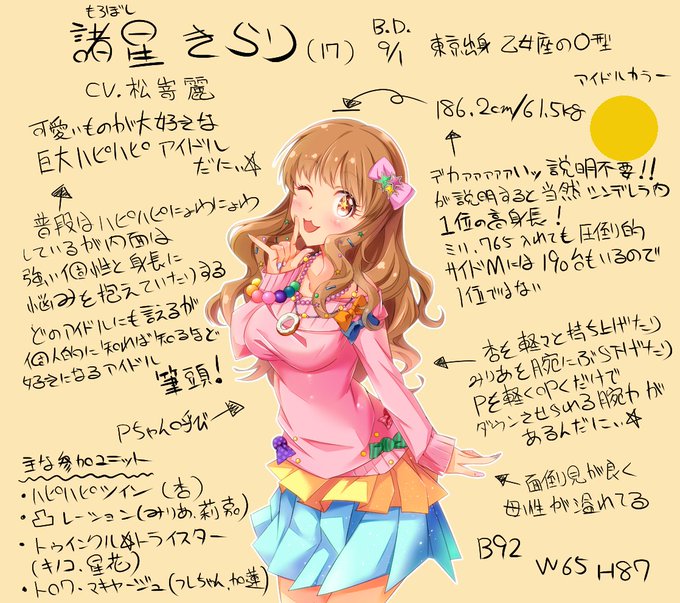 もろぼし
諸星 きらり (17)
B.D.
9/1
東京出身 乙女座のO型
CV.松嵜麗
アイドルカラー
186.2cm/61.5kg
可愛いものが大好きな
巨大ハピハピ アイドル
だにぃ☆
普段はハピハピにょわにょわ
しているが内面は
強い個性と身長に
悩みを抱えていたりする
どのアイドルにも言えるが
個人的に知れば知るほど
好きになるアイドル
筆頭!
デカァァァァァいッ説明不要!!
が説明すると当然シンデレラ内
1位の高身長!
ミリ、765 入れても圧倒的
サイドMには190台もいるので
1位ではない
杏を軽々と持ち上げたり
みりあを腕にぶら下げたり
Pを軽く叩くだけで
ダウンさせられる腕力が
あるんだにぃ☆
Pちゃん呼び
面倒見が良く
母性が溢れてる
主な参加ユニット
・ハピハピツイン (杏)
・凸レーション(みりあ、莉嘉)
・トゥインクル☆トライスター
(キノコ、星花)
・トロワ・マキャージュ(フレちゃん、加蓮)
B92
W65 H87